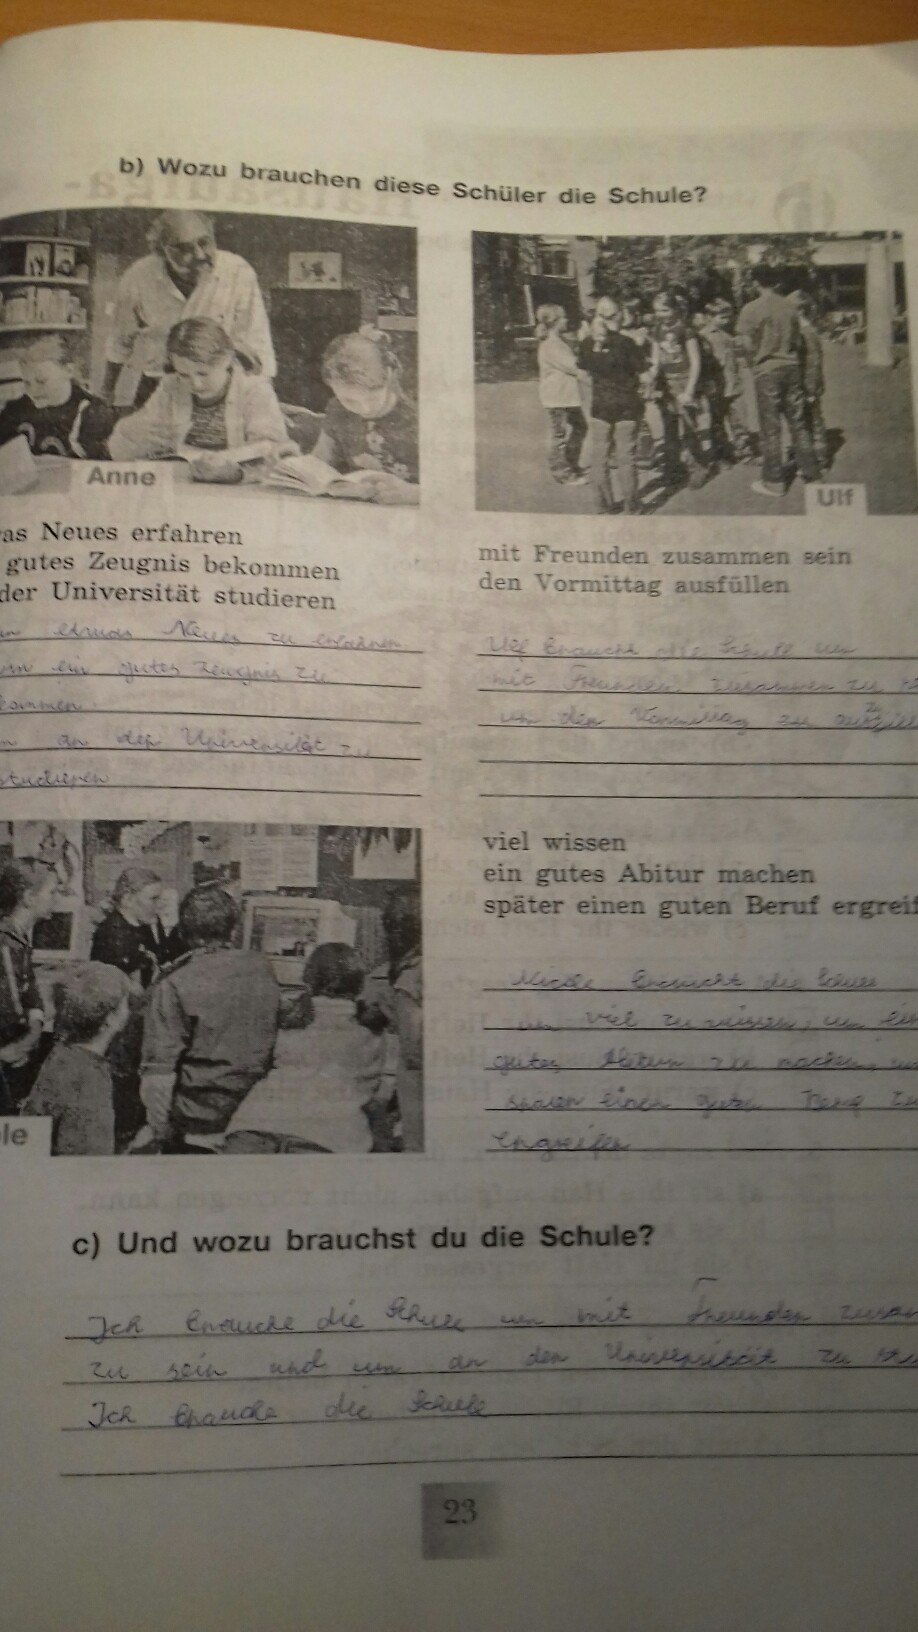 b) Wozu brauchen diese Schüler die Schule?
Anne
Ulf
as Neues erfahren
gutes Zeugnis bekommen
der Universität studieren
mit Freunden zusammen sein
den Vormittag ausfüllen
etwas Neues zu erfahren
ein gutes Zeugnis zu
kommen
an der Universität zu
studieren
Ulf braucht die Schule um
mit Freunden zusammen zu
um den Vormittag zu
viel wissen
ein gutes Abitur machen
später einen guten Beruf ergreif
Nicole braucht die Schule
um viel zu wissen, um ein
gutes Abitur zu machen,
einen Beruf zu
ergreifen
le
c) Und wozu brauchst du die Schule?
Ich brauche die Schule um mit Freunden zusam
zu sein und um an der Universität zu stu
Ich brauche die Schule
23